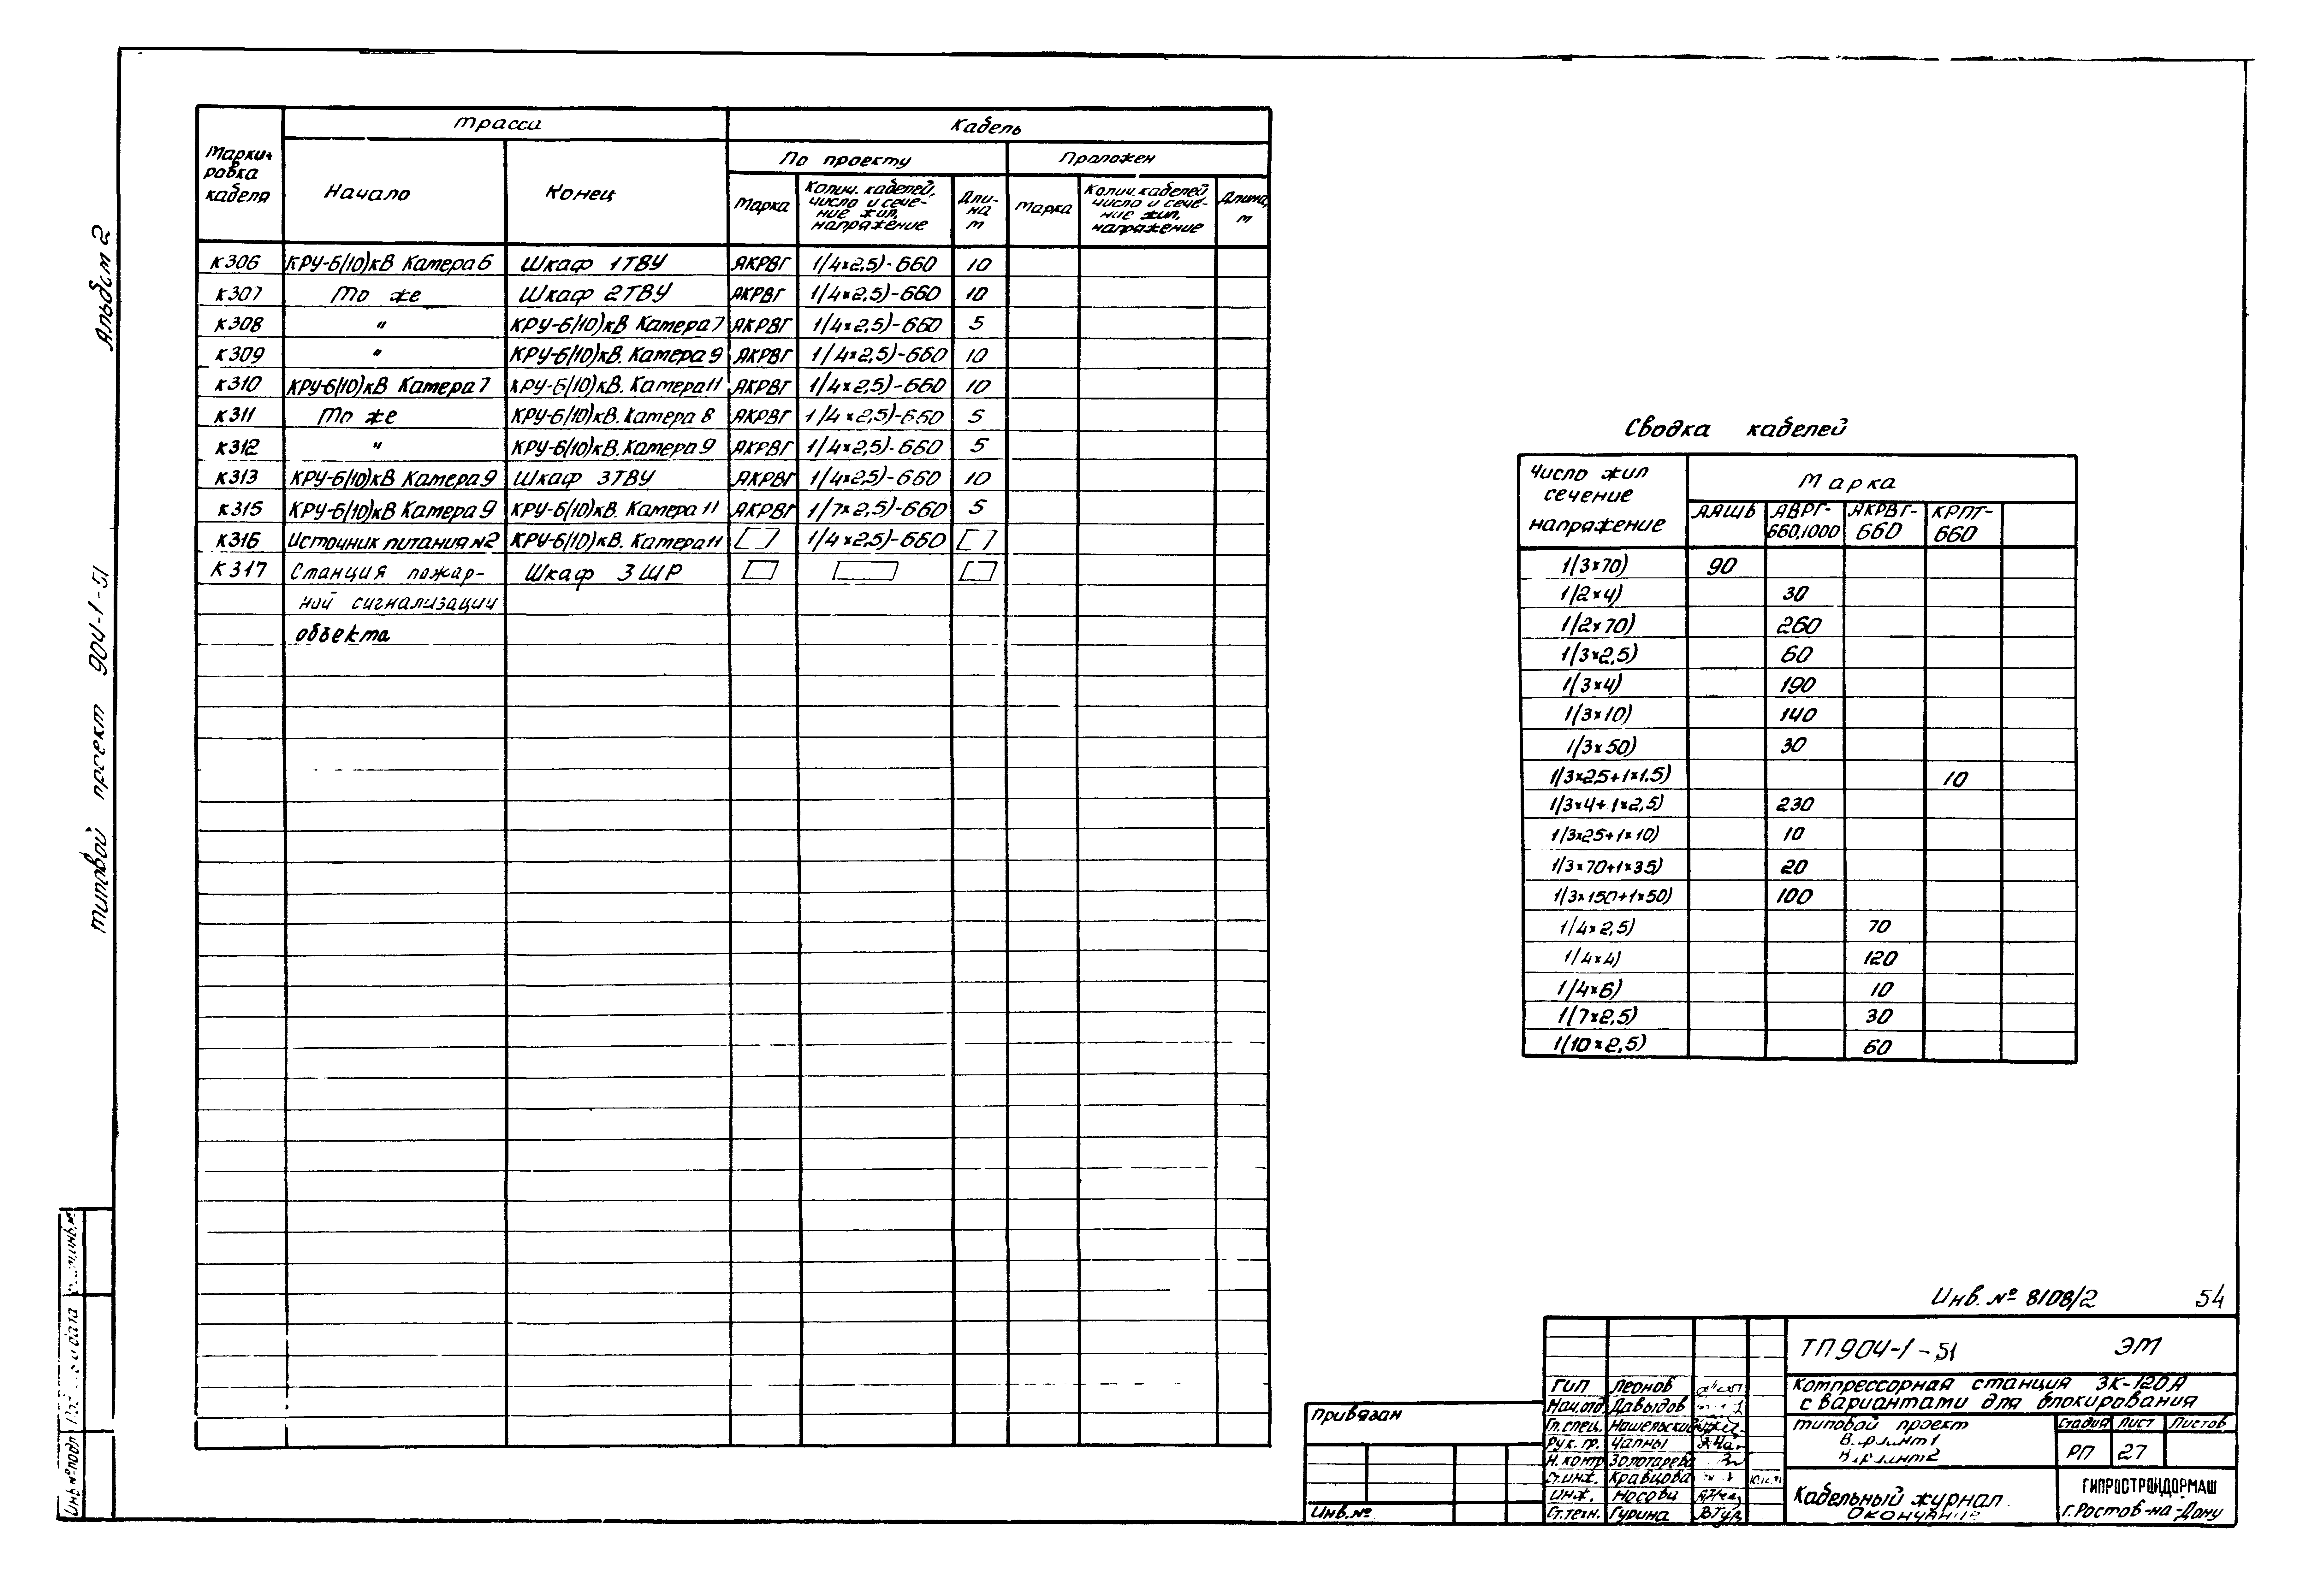 Альбом 2
типовой проект 904-1-51
Марки-
ровка
кабеля
Трасса
Кабель
Начало
Конец
По проекту
Проложен
Марка
Колич. кабелей,
число и сече-
ние жил,
напряжение
Дли-
на
м
Марка
Колич. кабелей
число и сече-
ние жил,
напряжение
Длина,
м
К306 КРУ-6(10)кВ Камера 6 Шкаф 1ТВУ АКРВГ 1(4×2,5)-660 10
К307 То же Шкаф 2ТВУ АКРВГ 1(4×2,5)-660 10
К308 " КРУ-6(10)кВ Камера 7 АКРВГ 1(4×2,5)-660 5
К309 " КРУ-6(10)кВ. Камера 9 АКРВГ 1(4×2,5)-660 10
К310 КРУ-6(10)кВ Камера 7 КРУ-6(10)кВ. Камера 11 АКРВГ 1(4×2,5)-660 10
К311 То же КРУ-6(10)кВ. Камера 8 АКРВГ 1(4×2,5)-660 5
К312 " КРУ-6(10)кВ. Камера 9 АКРВГ 1(4×2,5)-660 5
К313 КРУ-6(10)кВ Камера 9 Шкаф 3ТВУ АКРВГ 1(4×2,5)-660 10
К315 КРУ-6(10)кВ Камера 9 КРУ-6(10)кВ. Камера 11 АКРВГ 1(7×2,5)-660 5
К316 Источник питания №2 КРУ-6(10)кВ. Камера 11 1(4×2,5)-660
К317 Станция пожар- Шкаф 3ШР
ной сигнализации
объекта
Сводка кабелей
Число жил
сечение
напряжение
Марка
ААШВ
АВРГ-
660,1000
АКРВГ-
660
КРПТ-
660
1(3×70) 90
1(2×4) 30
1(2×70) 260
1(3×2,5) 60
1(3×4) 190
1(3×10) 140
1(3×50) 30
1(3×2,5+1×1,5) 10
1(3×4+1×2,5) 230
1(3×25+1×10) 10
1(3×70+1×35) 20
1(3×150+1×50) 100
1(4×2,5) 70
1(4×4) 120
1(4×6) 10
1(7×2,5) 30
1(10×2,5) 60
Инв. № 8108/2 54
ТП 904-1-51 ЭМ
Компрессорная станция 3К-120А
с вариантами для блокирования
типовой проект
Стадия Лист Листов
РП 27
Кабельный журнал.
Окончание
ГИПРОСТРОЙДОРМАШ
г. Ростов-на-Дону
ГИП Леонов
Нач.отд Давыдов
Гл.спец. Нашельский
Рук. гр. Чапны
Н. контр Золотарева
Ст.инж. Кравцова
Инж. Носова
Ст.техн. Гурина
Привязан
Инв.№
Инв №подл
и дата
инв.№